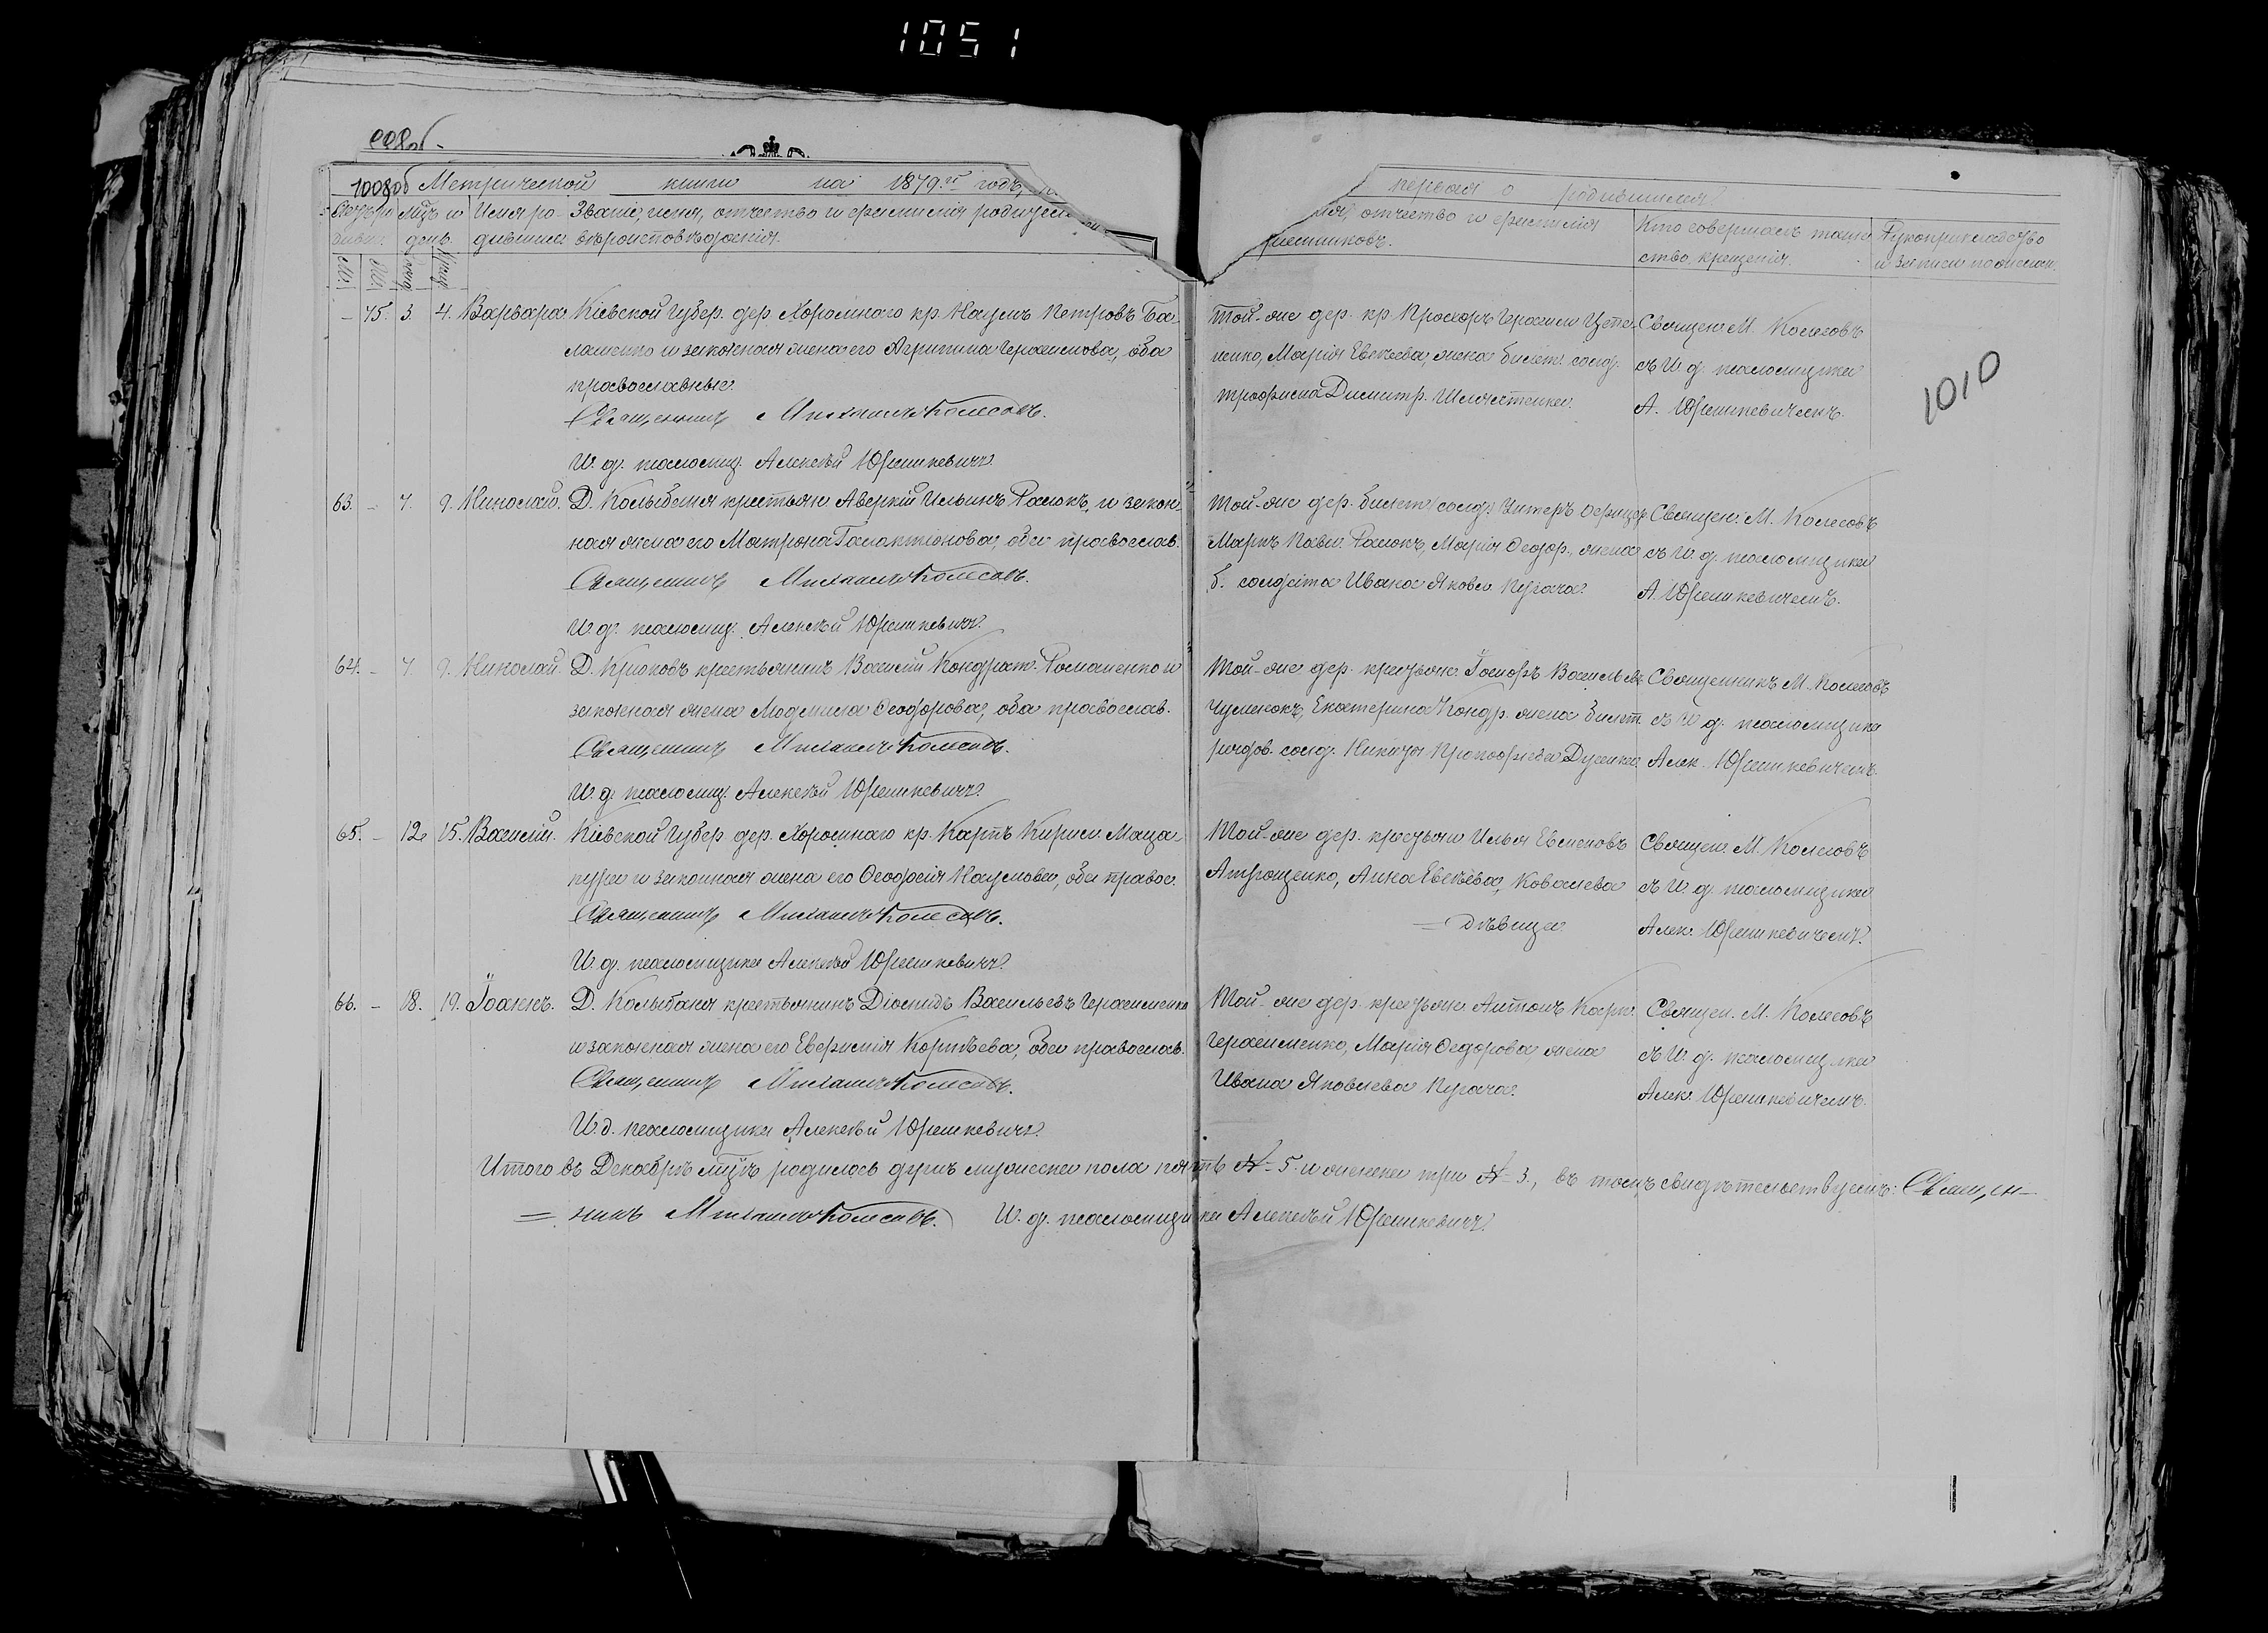 1051
1008об Метрической книги на 1879.й годъ,
первая о родившихся.
мц̃ъ и день.
Имя родившихся
Званіе, имя, отчество и фамилія родителей
вѣроисповѣданія.
отчество и фамилія
Кто совершалъ таин-
ство крещенія.
Рукоприкладство
1010
45. 3. 4. Варвара
Кіевской Губер. дер. Хорошаго кр. Наумъ Петровъ Ба-
лашенко и законная жена его Агрипина Герасимова, оба
православные.
Священникъ Михаилъ Колесовъ.
И. д. псаломщ. Алексѣй Юрашкевичъ.
Той-же дер. кр. Прохоръ Герасим
ненко, Марія Евсѣева, жена билет. солд.
Трофима Димитр.
Священ. М. Колесовъ
съ И. д. псаломщика
А. Юрашкевичемъ.
63. - 7. 9. Николай.
Д. Колыбелка крестьян. Аверкій Ильинъ Рамокъ, и закон-
ная жена его Матрона Галактіонова, оба православ.
Священникъ Михаилъ Колесовъ.
И. д. псаломщ. Алексѣй Юрашкевичъ.
Той-же дер. билет. солд. Унтеръ Офицер.
Маркъ Павл. Рамокъ, Марія Ѳеодор., жена
б. солдата Ивана Яковл. Пугача.
Священ. М. Колесовъ
съ И. д. псаломщика
А. Юрашкевичемъ.
64. - 7. 9. Николай.
Д. Крюковъ крестьянинъ Василій Кондрат. Романенко и
законная жена Людмила Ѳеодорова, оба православ.
Священникъ Михаилъ Колесовъ.
И. д. псаломщ. Алексѣй Юрашкевичъ.
Той-же дер. крестьян. Васильев.
Чуменокъ, Екатерина Кондр. жена билет.
рядов. солд. Никиты Прокофьева
Священникъ М. Колесовъ
съ И. д. псаломщика
Алек. Юрашкевичемъ.
65. - 12. 15. Василій.
Кіевской Губер. дер. Хорошаго кр. Карпъ Кирил. Маца-
пура и законная жена его Ѳеодосія Наумова, оба правос.
Священникъ Михаилъ Колесовъ.
И. д. псаломщика Алексѣй Юрашкевичъ.
Той-же дер. крестьян. Илья Евменовъ
Атрощенко, Анна Евсѣева, Ковалева
= дѣвица
Священ. М. Колесовъ
съ И. д. псаломщика
Алек. Юрашкевичемъ.
66. - 18. 19. Іоаннъ.
Д. Колыбелка крестьянинъ Діомидъ Васильевъ Герасименко
и законная жена его Евфимія Корнѣева, оба православ.
Священникъ Михаилъ Колесовъ.
И. д. псаломщика Алексѣй Юрашкевичъ.
Той-же дер. крестьян. Антонъ Карп.
Герасименко, Марія Ѳедорова жена
Ивана Яковлева Пугача.
Священ. М. Колесовъ
съ И. д. псаломщика
Алек. Юрашкевичемъ.
Итого въ Декабрѣ мц̃ѣ родилось душъ мужеска пола пять №-5. и женска три №-3., въ томъ свидѣтельствуемъ: Священ-
= никъ Михаилъ Колесовъ. И. д. псаломщика Алексѣй Юрашкевичъ.